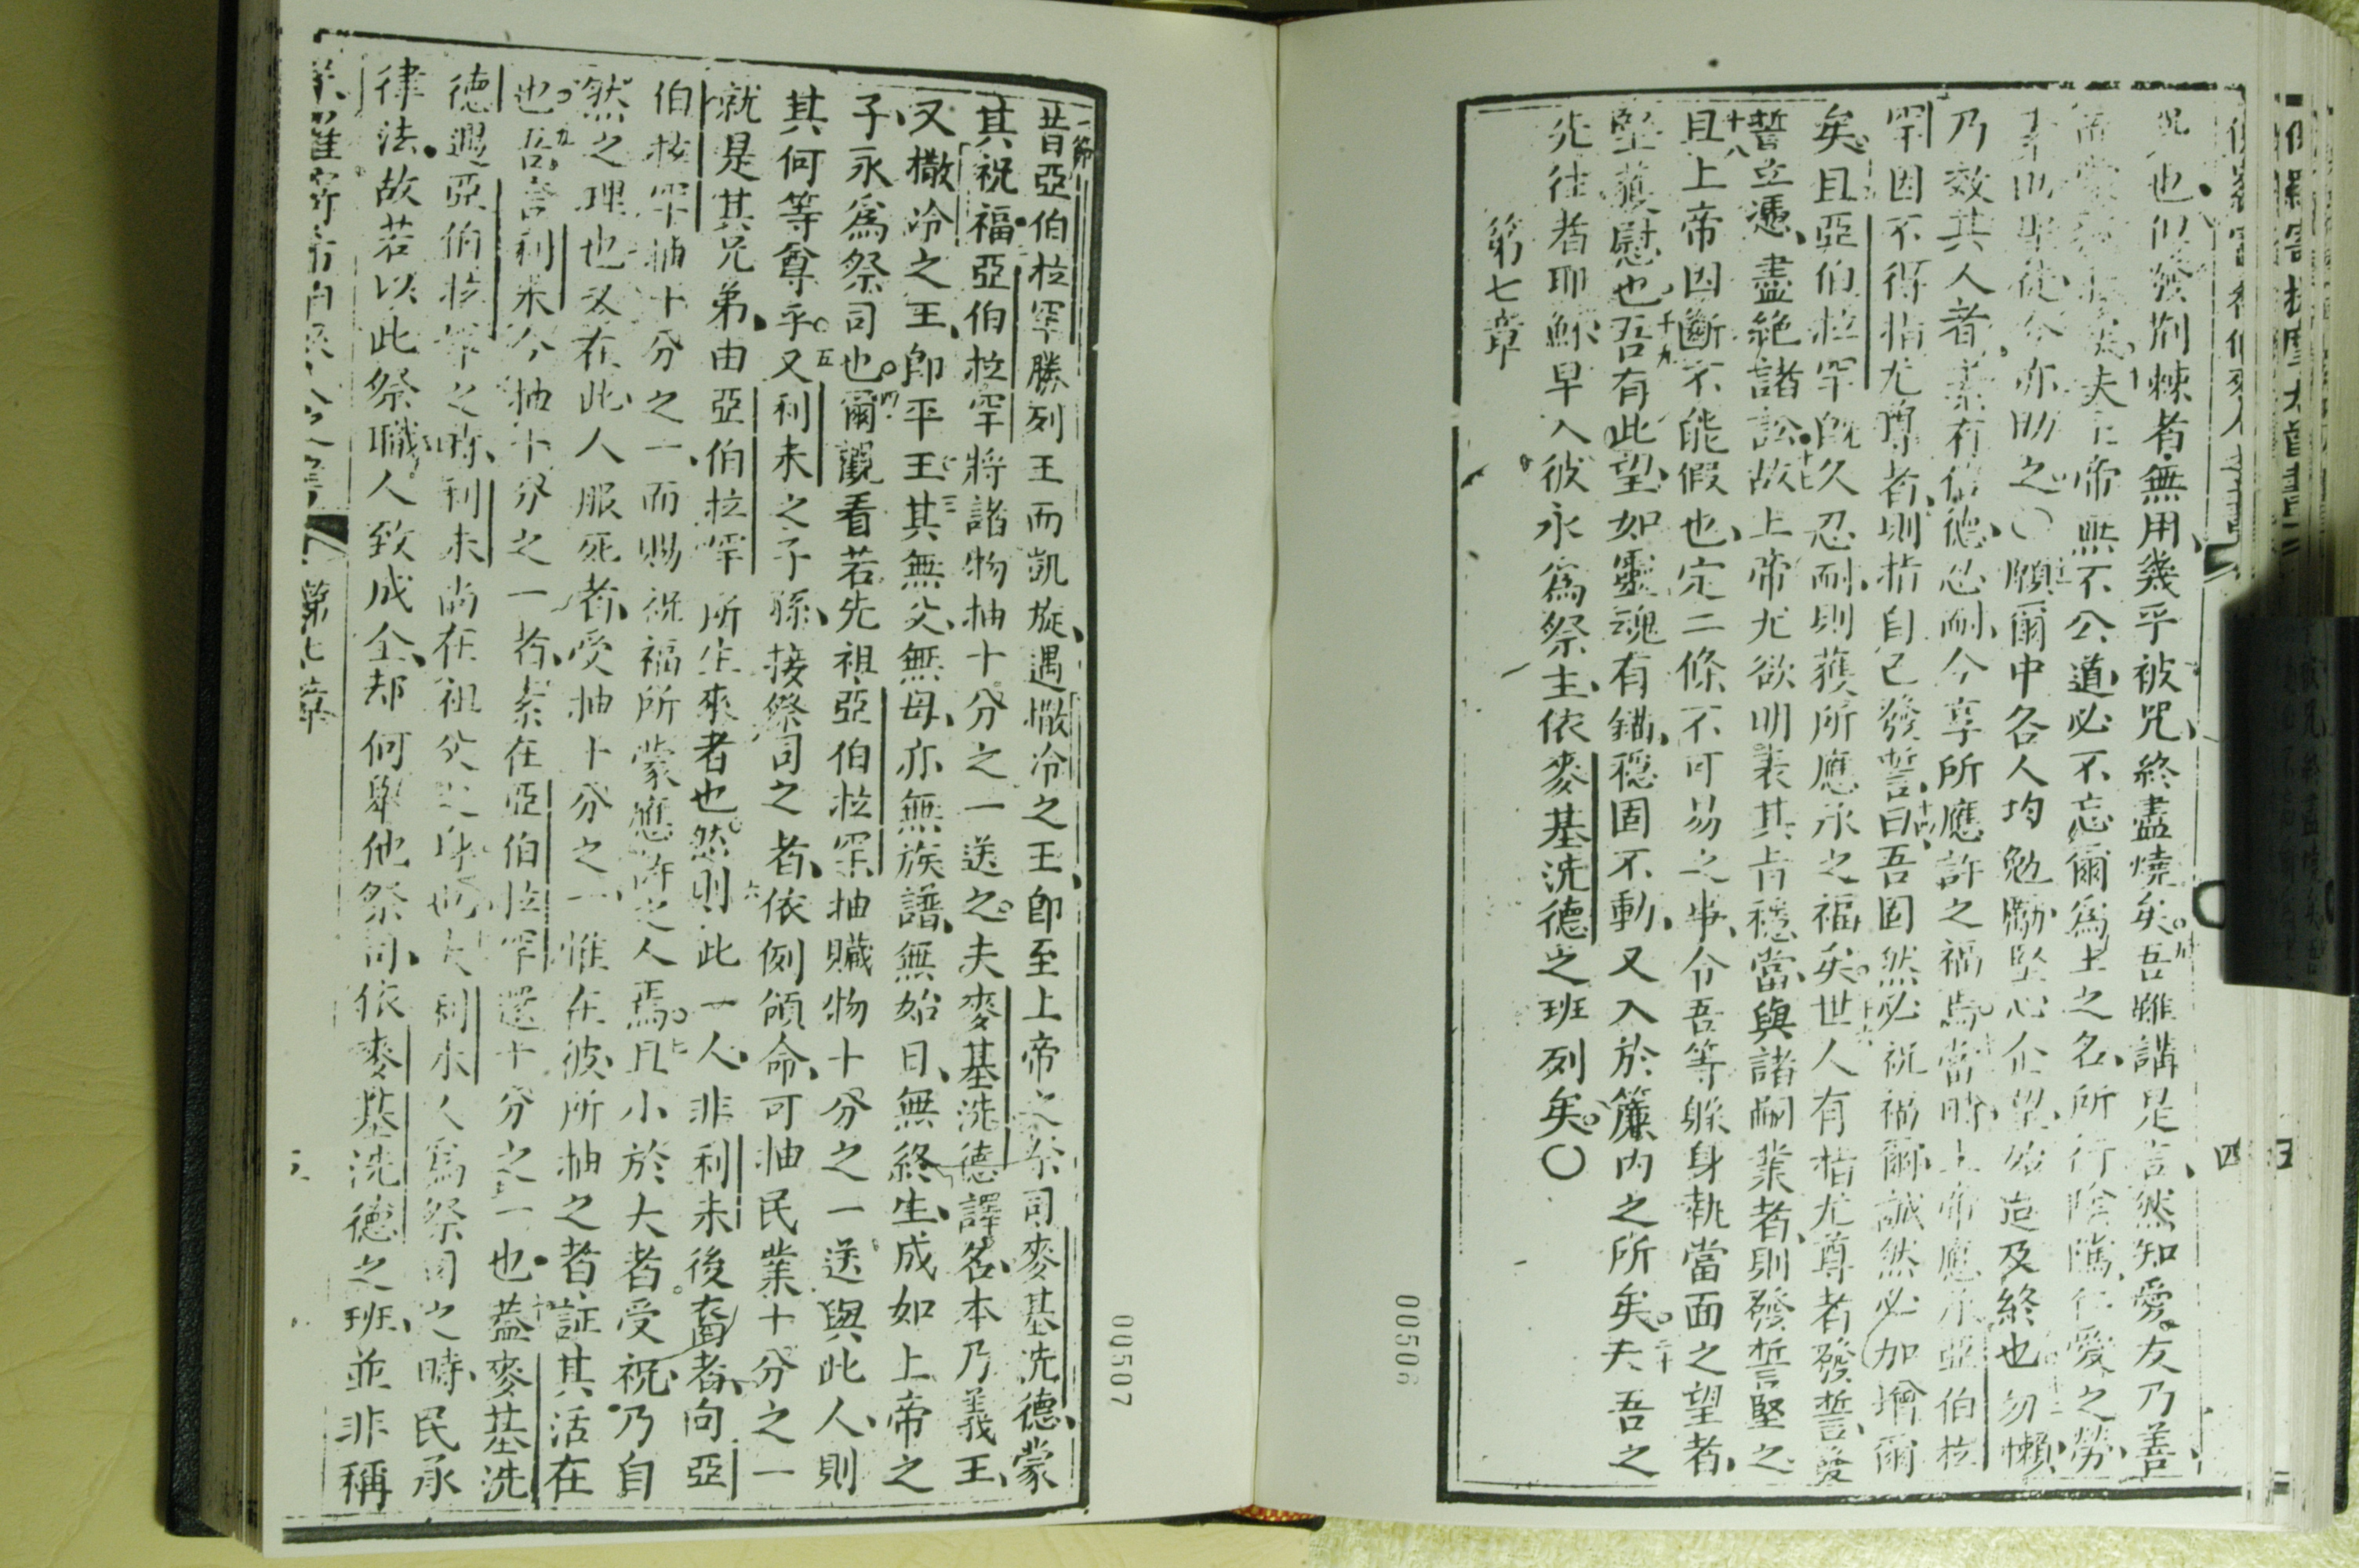 呪也但發荊棘者無用幾乎被咒終盡燒矣吾雖講是言然知愛友乃善
夫上帝無不公道必不忘爾為主之名所行陰隲仁愛之勞
聖徒今亦助之〇願爾中各人均勉勵堅心企望始迨及終也勿懶
乃效其人者素有信德忍耐今享所應許之福焉當時上帝應承亞伯拉
罕因不得指尤尊者則指自己發誓曰吾固然必祝福爾誠然必加增爾
矣且亞伯拉罕既久忍耐則獲所應承之福矣世人有指尤尊者發誓爰
誓立憑盡絕諸訟故上帝尤欲明表其旨穩當與諸嗣業者則發誓堅之
且上帝因斷不能假也定二條不可易之事令吾等躲身執當面之望者
堅獲慰也吾有此望如靈魂有錨穩固不動又入於簾內之所矣夫吾之
先往者耶穌早入彼永為祭主依麥基洗德之班列矣〇
第七章
四
00506
一節
昔亞伯拉罕勝列王而凱旋遇撒冷之王卽至上帝之祭司麥基洗德蒙
其祝福亞伯拉罕將諸物抽十分之一送之夫麥基洗德譯名本乃義王
又撒冷之王卽平王其無父無母亦無族譜無始日無終生成如上帝之
子永為祭司也爾觀看若先祖亞伯拉罕抽贓物十分之一送與此人則
其何等尊乎又利未之子孫接祭司之者依例頒命可抽民業十分之一
就是其兄弟由亞伯拉罕所生來者也然則此一人非利未後裔者向亞
伯拉罕抽十分之一而賜祝福所蒙應許之人焉且小於大者受祝乃自
然之理也又在此人服死者受抽十分之一惟在彼所抽之者証其活在
也吾言利未今抽十分之一者素在亞伯拉罕還十分之一也蓋麥基洗
德遇亞伯拉罕之時利未尚在祖父之身也夫利未人為祭司之時民承
律法故若以此祭職人致成全却何興他祭司依麥基洗德之班並非稱
第七章
00507